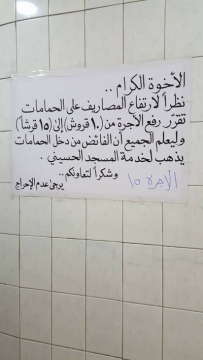 الأخوة الكرام ..
نظراً لارتفاع المصاريف على الحمامات
تقرّر رفع الأجرة من (١٠ قروش) إلى (١٥ قرشاً)
وليعلم الجميع أن الفائض من دخل الحمامات
يذهب لخدمة المسجد الحسيني .
وشكراً لتعاونكم ..
يرجى عدم الإحراج
الاجرة ١٥